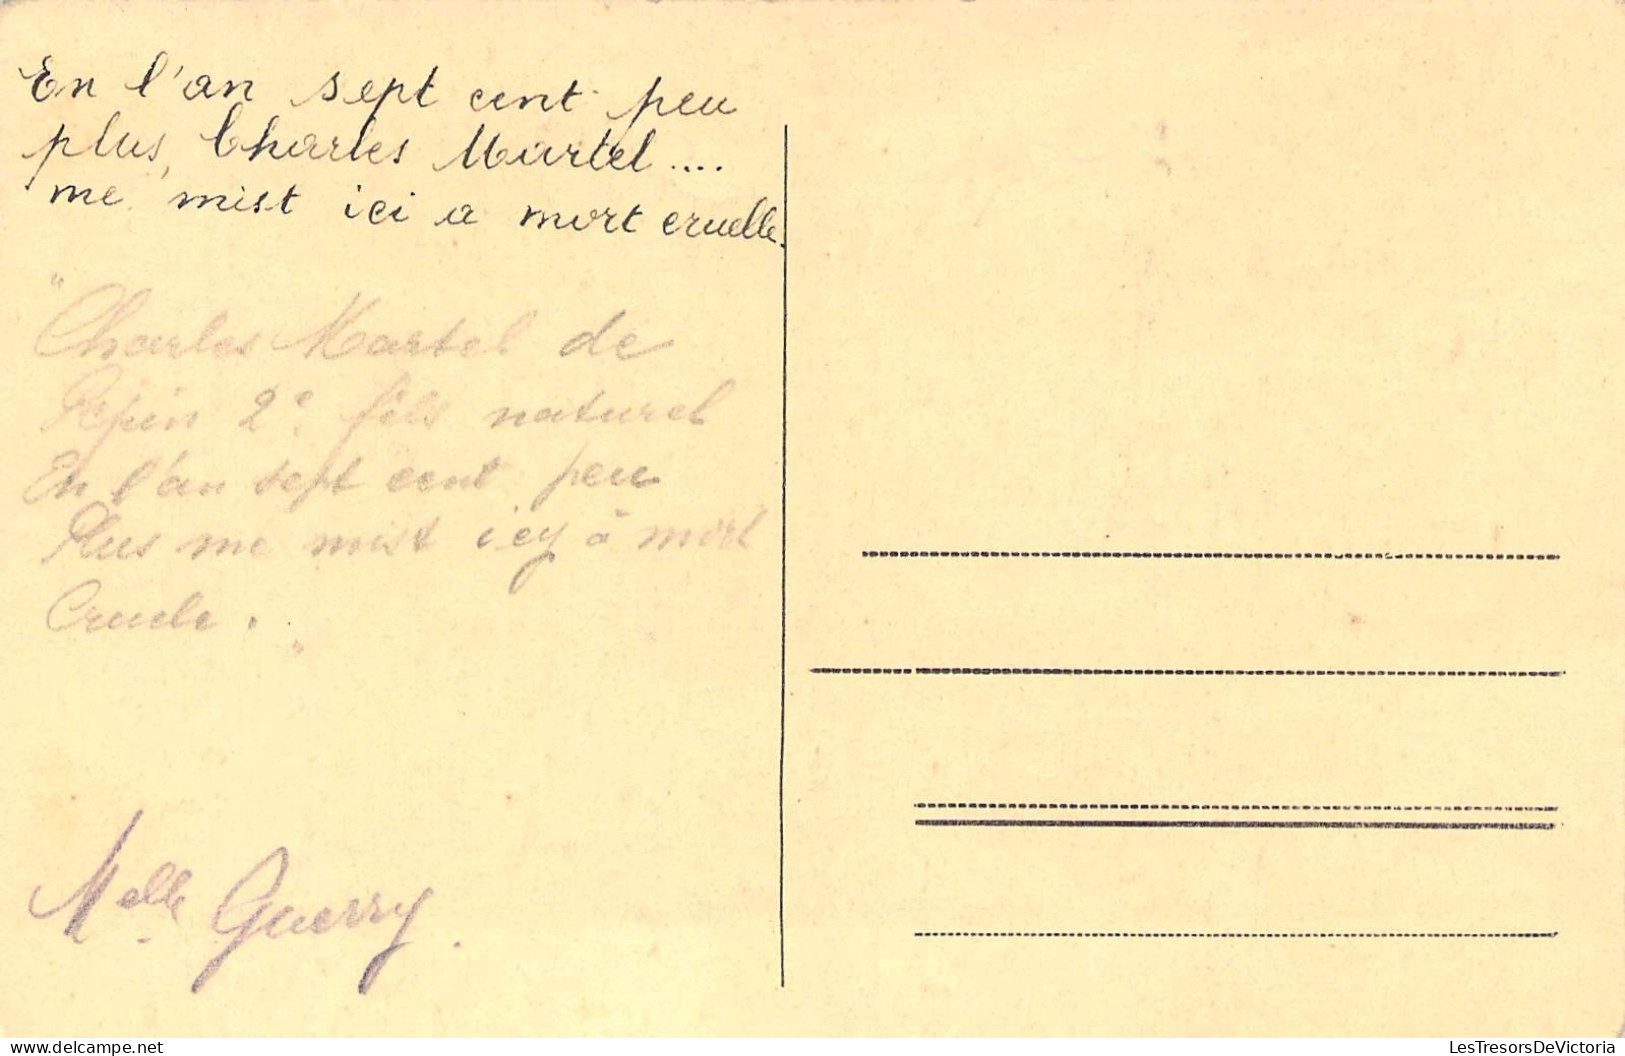 En l'an sept cent peu
plus, Charles Martel....
me mist ici a mort cruelle.
"Charles Martel de
Pepin 2e fils naturel
En l'an sept cent peu
Plus me mist icy à mort
Cruele."
Melle Guerry.
LesTresorsDeVictoria.com